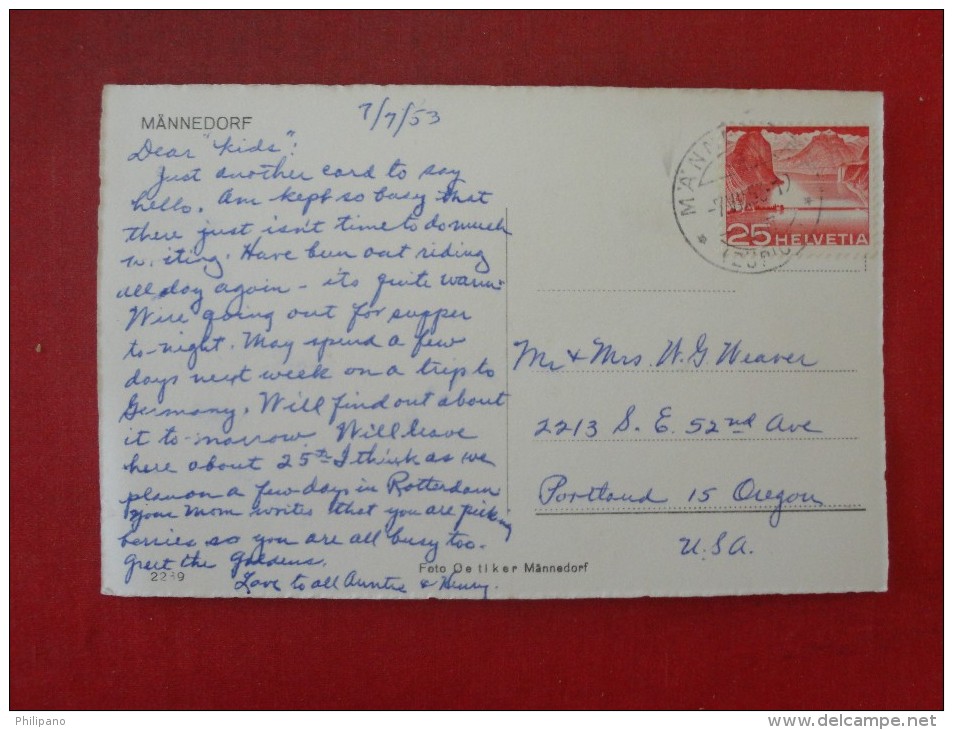 MÄNNEDORF
7/7/53
Dear "Kids":
Just another card to say
hello. Am kept so busy that
there just isn't time to do much
writing. Have been out riding
all day again - it's quite warm.
We're going out for supper
to-night. May spend a few
days next week on a trip to
Germany. Will find out about
it to-morrow. Will leave
here about 25th I think as we
plan on a few days in Rotterdam
your Mom writes that you are picking
berries so you are all busy too.
Greet the
Love to all Auntie & Henry.
2239
Foto Oetiker Männedorf
MÄNN
(ZÜRIC
25 HELVETIA
Mr & Mrs. W. G. Weaver
2213 S. E. 52nd Ave
Portland 15 Oregon
U.S.A.
Philipano
www.delcampe.net